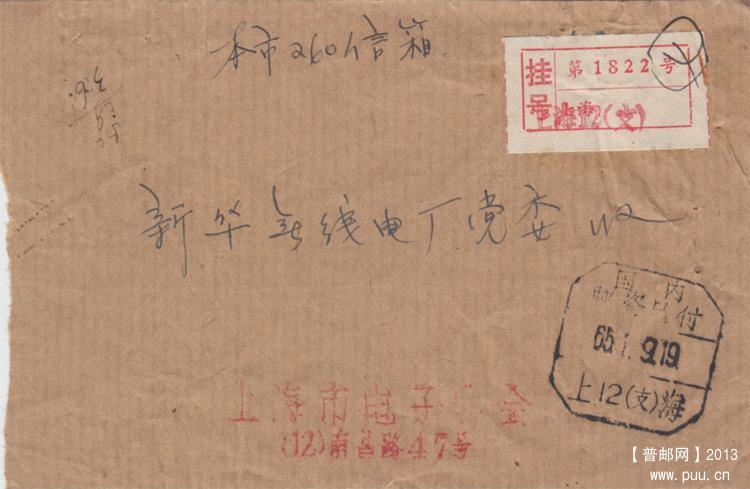 本市260信箱
挂号
第1822号
上海12(支)
新华无线电厂党委 收
国内
邮资已付
65.1.9.19
上12(支)海
上海市电子学会
(12)南昌路47号
【普邮网】2013
www.puu.cn